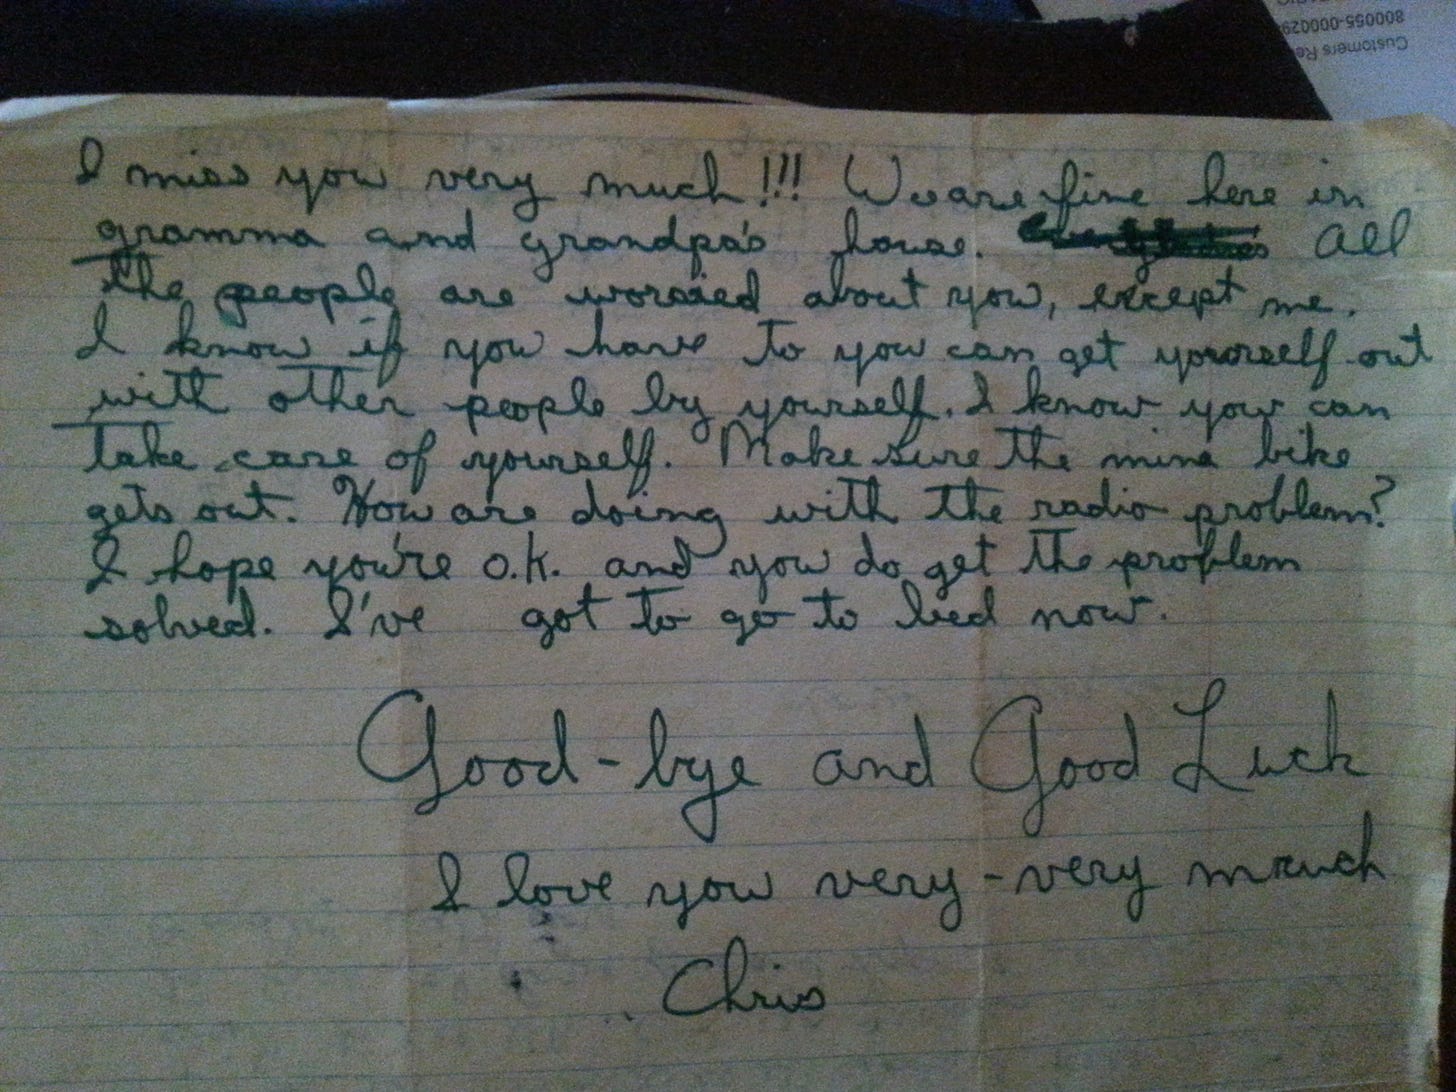 800055-000029
Customers Re
I miss you very much!!! We are fine here in
gramma and grandpa's house. All
the people are worried about you, except me.
I know if you have to you can get yourself out
with other people by yourself. I know you can
take care of yourself. Make sure the mine bike
gets out. How are doing with the radio problem?
I hope you're o.k. and you do get the problem
solved. I've got to go to bed now.
Good-bye and Good Luck
I love you very-very much
Chris